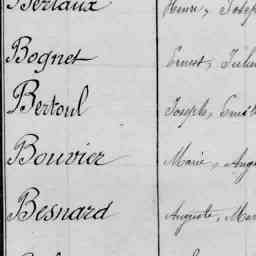 Bertaux Henri, Joseph
Bognet Ernest, Julien
Bertoul Joseph, Émile
Bouvier Marie, Aug
Besnard Auguste, Mar